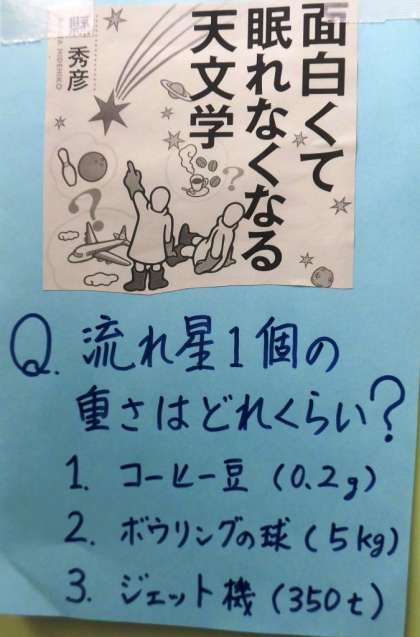 面白くて
眠れなくなる
天文学
縣 秀彦
AGATA HIDEHIKO
Q. 流れ星1個の
重さはどれくらい?
1. コーヒー豆 (0.2g)
2. ボウリングの球 (5kg)
3. ジェット機 (350t)